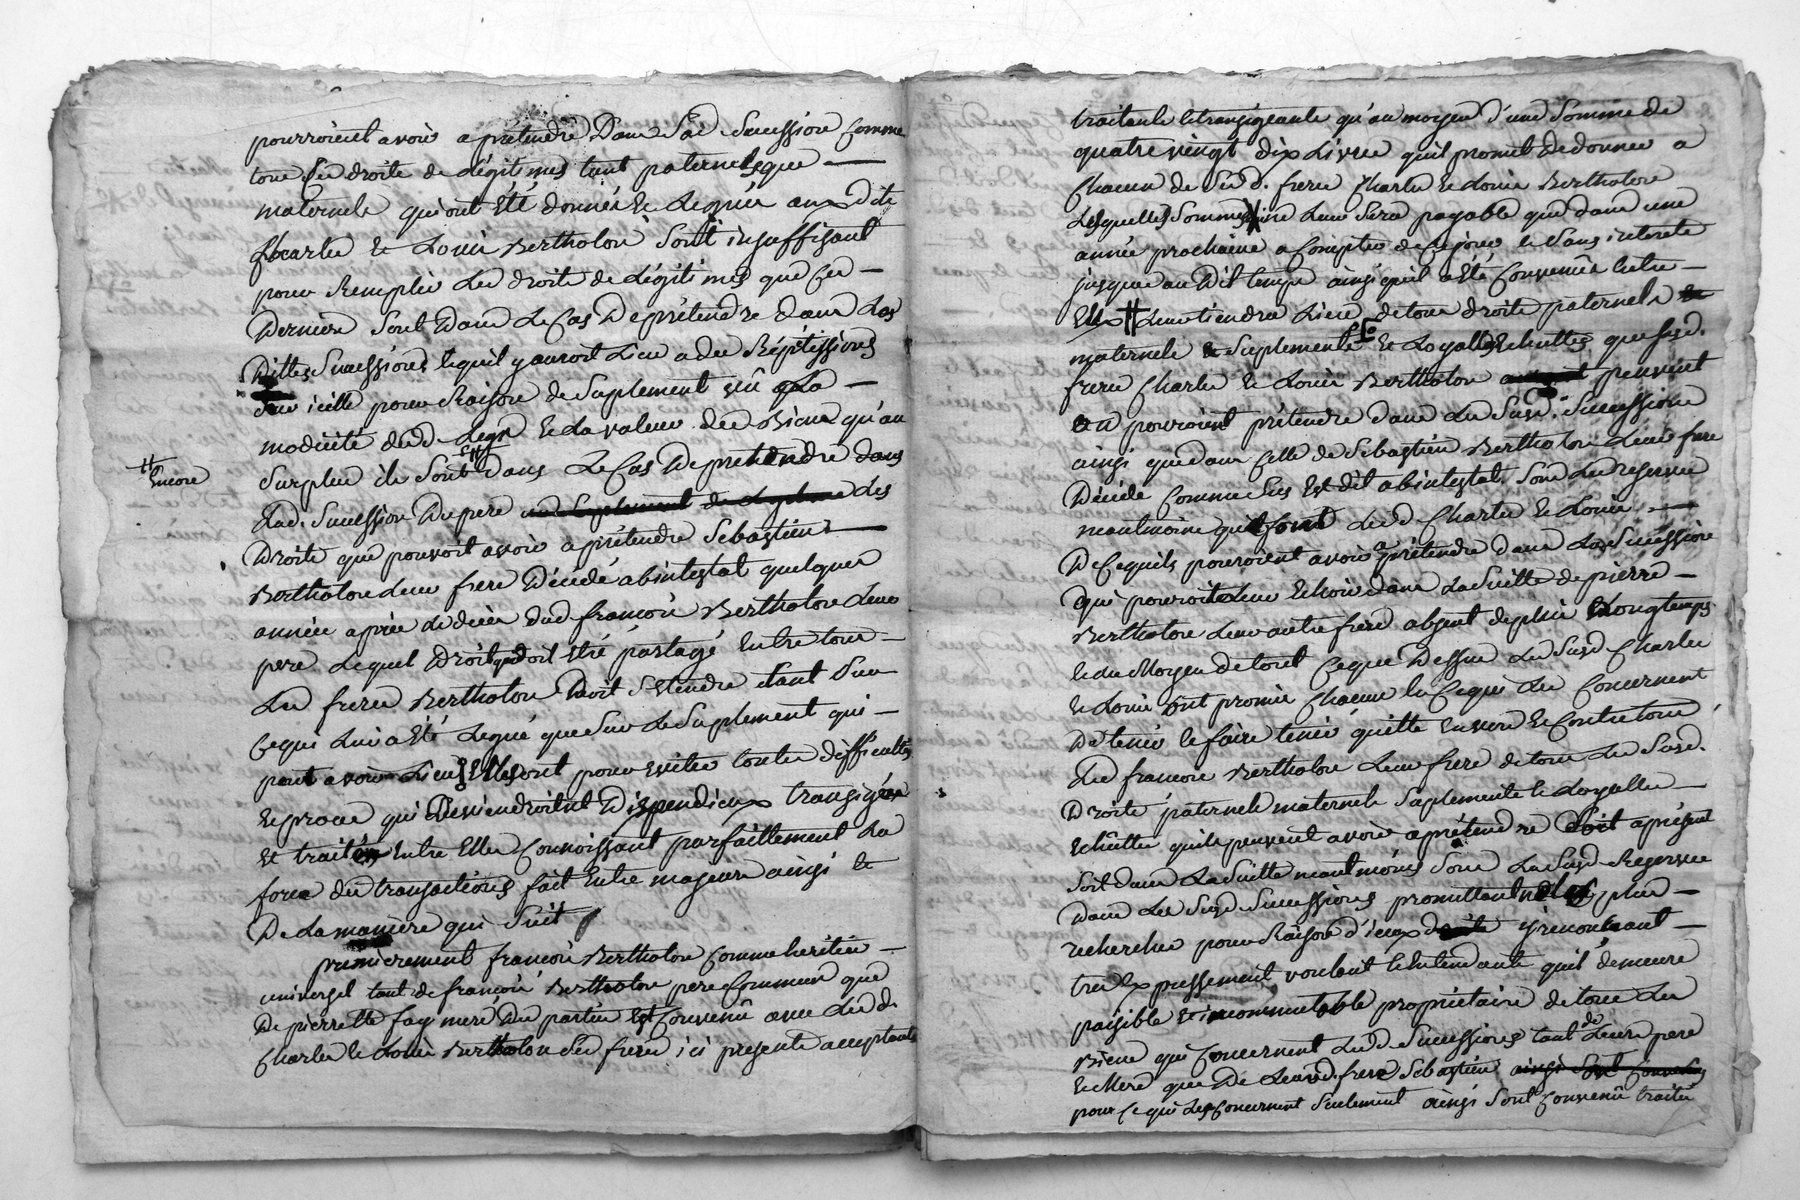 pourroient avoir a pretendre Dans Sad. Sucession Comme
tous Ses droits de légitimes tant paternels que —
maternels qui ont été donnés et Legués auxdits
Charles et Louis Bertholon Sont insuffisant
pour Remplir Les droits de légitimes que Ces —
Derniers Sont Dans Le Cas De prétendre dans Les
Dittes Sucessions et quil y auroit Lieu a des Répétissions
Sur icelle pour Raison de Suplement vû La —
modicité desd. Legs et La valeur des Biens qu'au
Surplus ils Sont dans Le Cas De pretendre dans
#
Encore
Lad. Sucession Du pere un Suplement de Legitime des
Droits que pouvoit avoir a prétendre Sebastien —
Bertholon Leur frere Décédé abintestat quelques
années après Le décès dud françois Bertholon Leur
pere Lequel Droit qui doit être partagé Entre tous —
Les freres Bertholon Doit S'etendre tant Sur
Ce qui Lui a Eté Legué que Sur Le Suplement qui —
peut avoir Lieu Elles ont pour eviter toutes difficultés
Et procès qui Deviendroient Dispendieux transigés
et traités Entre Elles Connoissant parfaittement La
force des transactions fait Entre majeurs ainsi et
De La manière qui Suit
premierement françois Bertholon Comme héritier —
universel tant de françois Bertholon pere Commun que
De pierrette fay mere Des parties Est Convenû avec Lesd.
Charles et Louis Bertholon Ses freres ici presents acceptants
traitants et transigeants qu'au moyen d'une Somme de
quatre vingt dix Livres quil promet De donner a
Chacun de Sesd. freres Charles et Louis Bertholon
Lesquelles Sommes ne Leur Sera payable que dans une
année prochaine a Compter de Ce jour et Sans interets
jusques au Dit temps ainsi quil a été Convenûs Entre —
Eux # Leur tiendra Lieu de tous droits paternels
maternels Suplements et Loyalles Echuttes que Sesd.
freres Charles et Louis Bertholon peuvent
ou pouroient prétendre dans Les Susd. Sucessions
ainsi que dans Celle de Sebastien Bertholon Leur frere
Décédé Comme Sus Est dit abintestat, Sous Les reserves
néantmoins que font Lesd Charles et Louis —
De Ce quils pouroient avoir a prétendre dans La Sucession
qui pouroit Leur Echoir dans La Suitte de pierre —
Bertholon Leur autre frere absent depuis Longtemps
et au Moyen de tout Ce que Dessus Les Susd Charles
et Louis ont promis Chacun En Ce qui Les Concernent
De tenir et faire tenir quitte Envers Et Contre tous
Led françois Bertholon Leur frere de tous Les Susd.
Droits paternels maternels Suplements et Loyalles —
Echûttes quils peuvent avoir a prétendre Soit a présent
Soit dans La Suitte néantmoins Sous La Susd Reserve
Dans Les Susd. Sucessions promettant plus —
rechercher pour Raison d'iceux y renonceant —
tres Expressement voulant Et Entendants quil demeure
paisible et incommutable propriétaire de tous Les
Biens qui Concernent Lesd. Sucessions tant de Leurs pere
Et Mere que De Leursd. frere Sebastien ainsi Sont Convenûs
pour Ce qui Les Concernent Seulement ainsi Sont Convenû traités